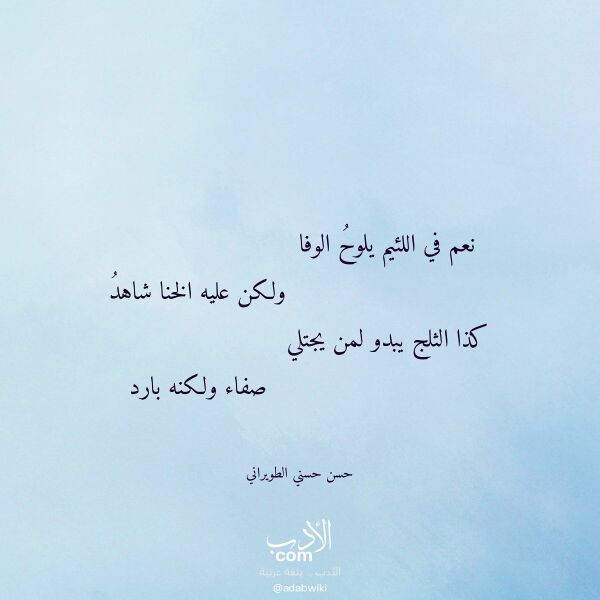 نعم في اللئيم يلوحُ الوفا
ولكن عليه الخنا شاهدُ
كذا الثلج يبدو لمن يجتلي
صفاء ولكنه بارد
حسن حسني الطويراني
الأدب
com
الأدب .. بلغة عربية
@adabwiki